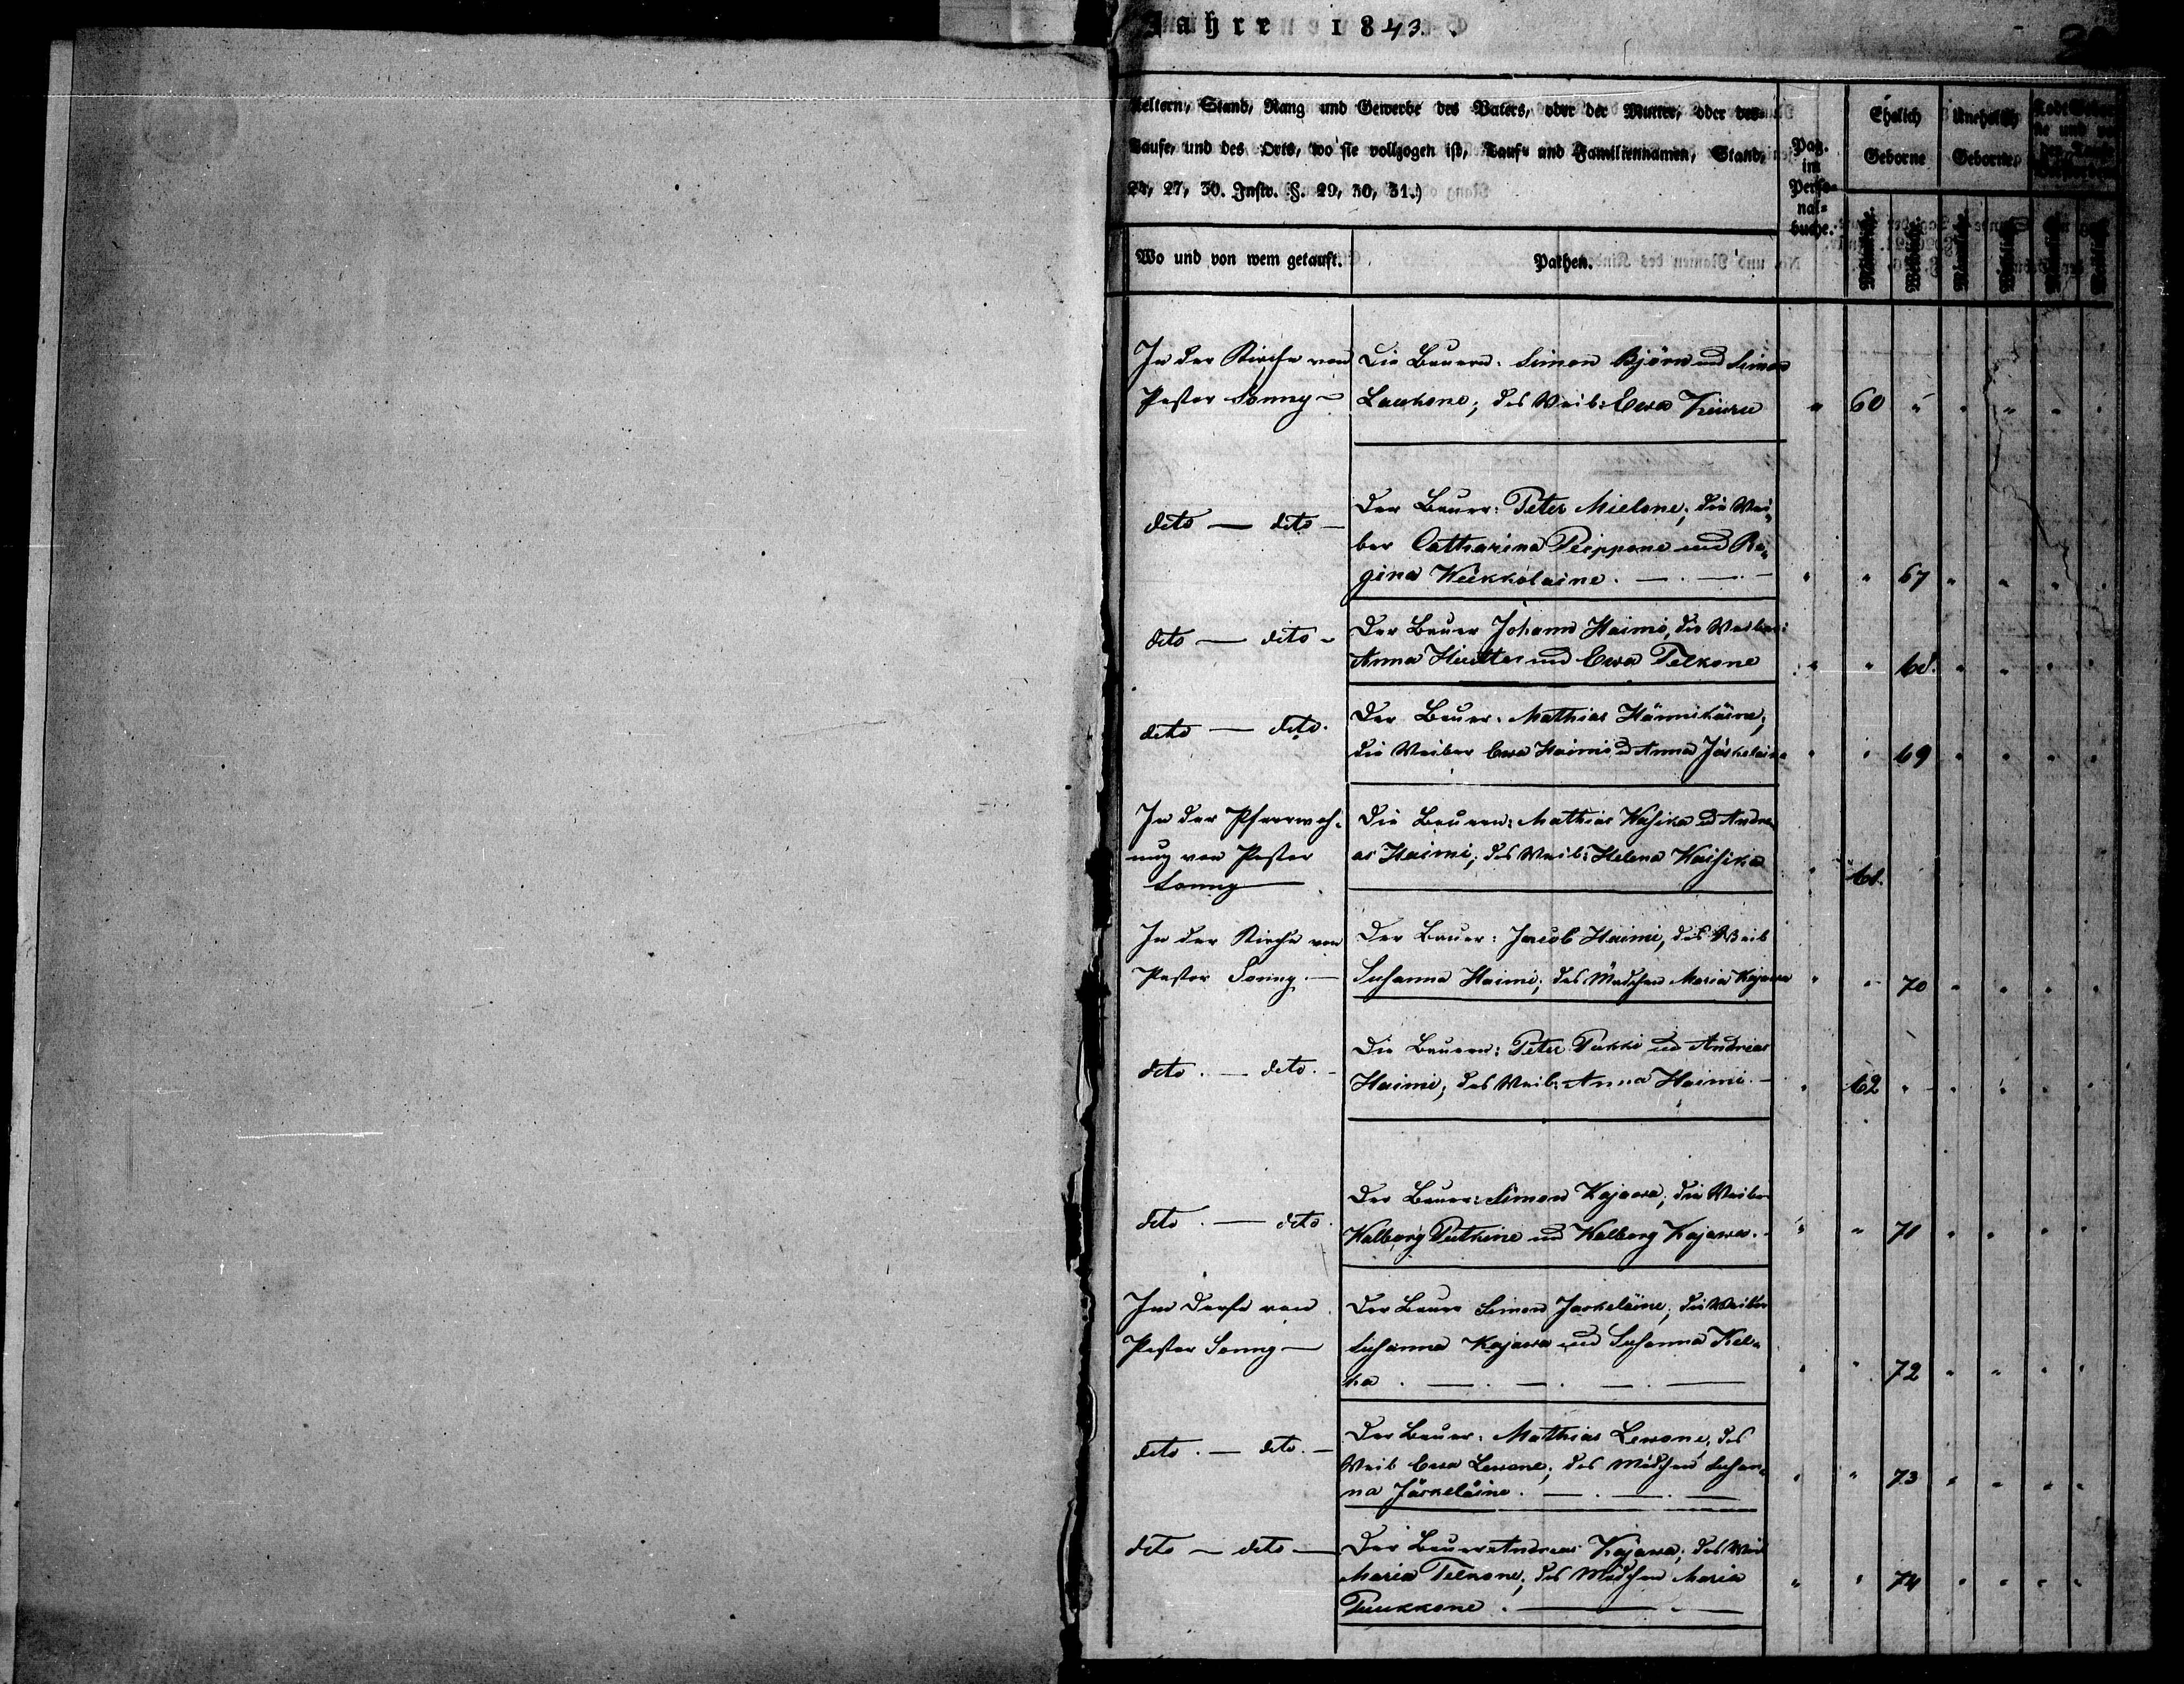 Jahre 1843.
Aeltern, Stand, Rang und Gewerbe des Vaters, oder der Mutter, oder des
Taufe, und des Orts, wo sie vollzogen ist, Tauf- und Familiennamen, Stand,
24, 27, 30. Instr. §. 29, 30, 31.)
Wo und von wem getauft.
Pathen.
Pag.
im
Perso-
nal-
buche.
Ehelich
Geborne
Unehelich
Geborne
Männlich.
Weiblich.
Männlich.
Weiblich.
In der Kirche von
Pastor Sonny –
Die Bauern: Simon Björn und Simon
Laukone; das Weib: Ewa Kiuru
" 60 " " " " "
dito — dito —
Der Bauer: Peter Mielone; die Wei-
ber Catharina Peippone und Re-
gina Kukkolaine. — . — . —
" " 67 " " " "
dito — dito –
Der Bauer Johann Haimi, die Weiber:
Anna und Ewa Telkone
" " 68. " " " "
dito — dito.
Der Bauer: Mathias Hännikäine;
die Weiber Ewa Haimi u Anna Jäskelaine
" " 69 " " " "
In der Pfarrwoh-
nung von Pastor
Sonny —
Die Bauern: Mathias u Andre-
as Haimi; das Weib: Helena
" 61.
In der Kirche von
Pastor Sonny. —
Der Bauer: Jacob Haimi, das Weib
Susanna Haimi; das Mädchen Maria Kajawa
" " 70 " " " "
dito. — dito. –
Die Bauern: Peter Pukki und Andreas
Haimi; das Weib: Anna Haimi. –
" 62 " " " " "
dito. — dito.
Der Bauer: Simon Kajawa; die Weiber
Walborg Putkine und Walborg Kajawa. –
" " 71 " " " "
Im Dorfe von
Pastor Sonny —
Der Bauer Simon Jaskeläine; die Weiber
Susanna Kajawa und Susanna Kel-
ka . — . — . — . —
" " 72 " " " "
dito. — dito. –
Der Bauer: Mathias Lewone, das
Weib Ewa Lewone; das Mädchen Susan-
na Jäskeläine. — . — . —
" " 73 " " " "
dito — dito —
Der Bauer Andreas Kajawa; das Weib
Maria Telkone; das Mädchen Maria
. — . —
" " 74 " " " "